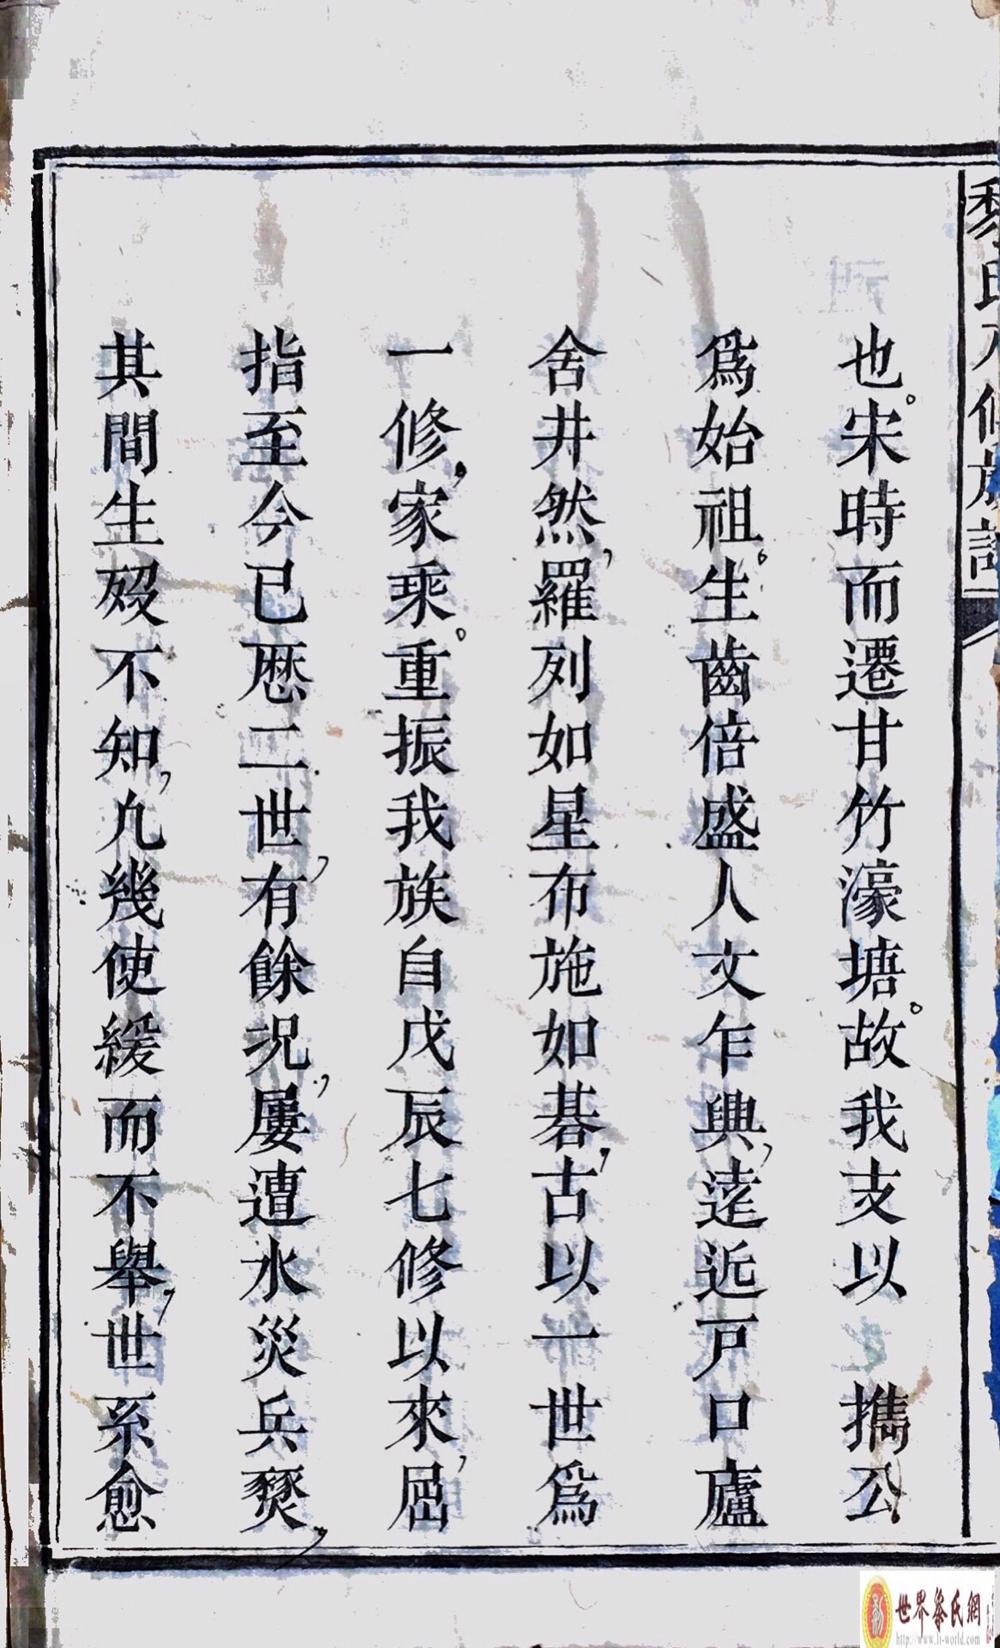 黎氏八修族譜
也。宋時而遷甘竹濠塘。故我支以 携公
爲始祖。生齒倍盛人文乍興，逹近戸口廬
舍井然，羅列如星布施如碁，古以一世爲
一修，家乘。重振我族自戊辰七修以來，屈
指至今已歴二世，有餘况，屢遭水災兵燹，
其間生殁不知，九幾使緩而不舉，世系愈
世界黎氏網
http://www.li-world.com